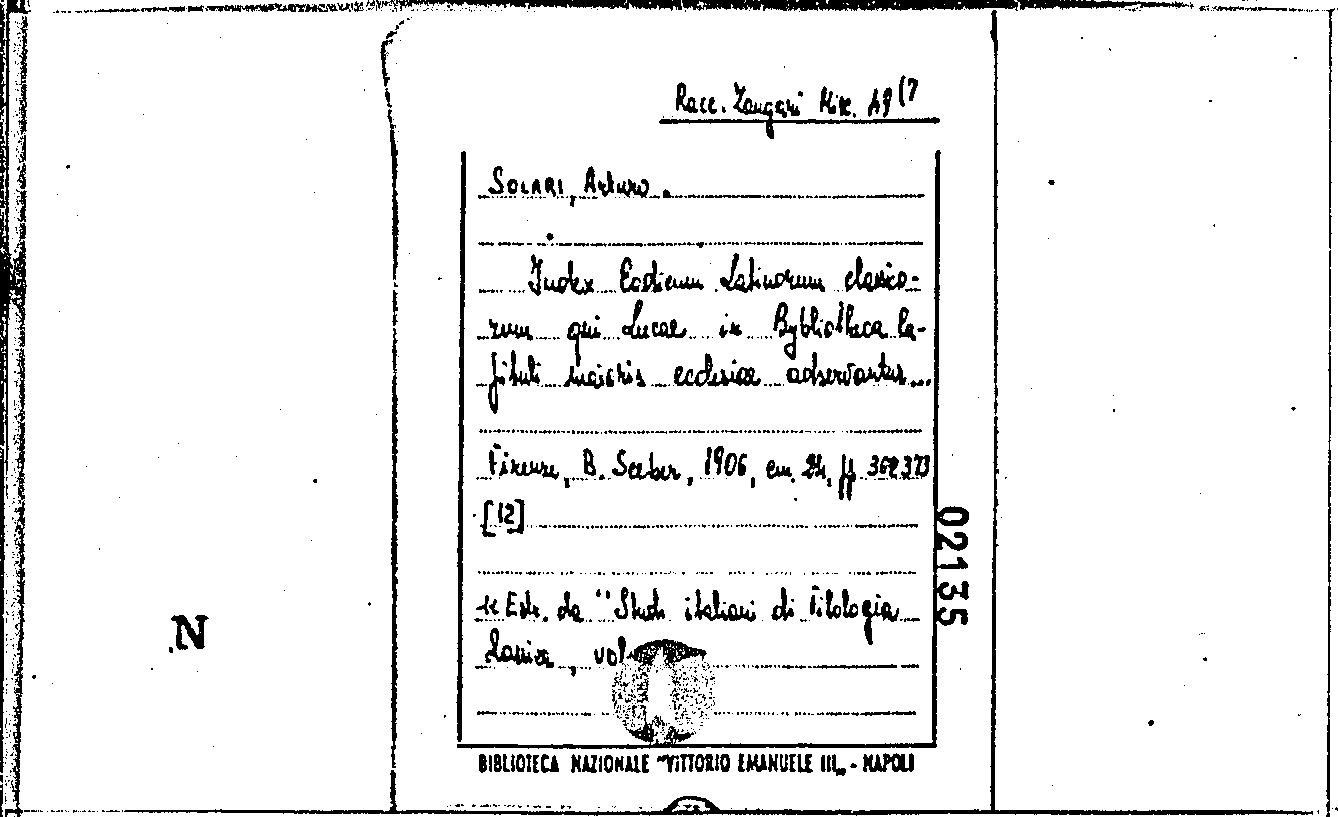 Racc. Zangari Misc. A9 (7
SOLARI, Arturo.
Index Codicum Latinorum classico-
rum qui Lucae in Bybliotheca Ca-
pituli maioris ecclesiae adservantur...
Firenze, B. Seeber, 1906, cm. 24, pp. 373
[12]
Estr. da "Studi italiani di Filologia
Classica, vol.
02135
N
BIBLIOTECA NAZIONALE "VITTORIO EMANUELE III„ - NAPOLI